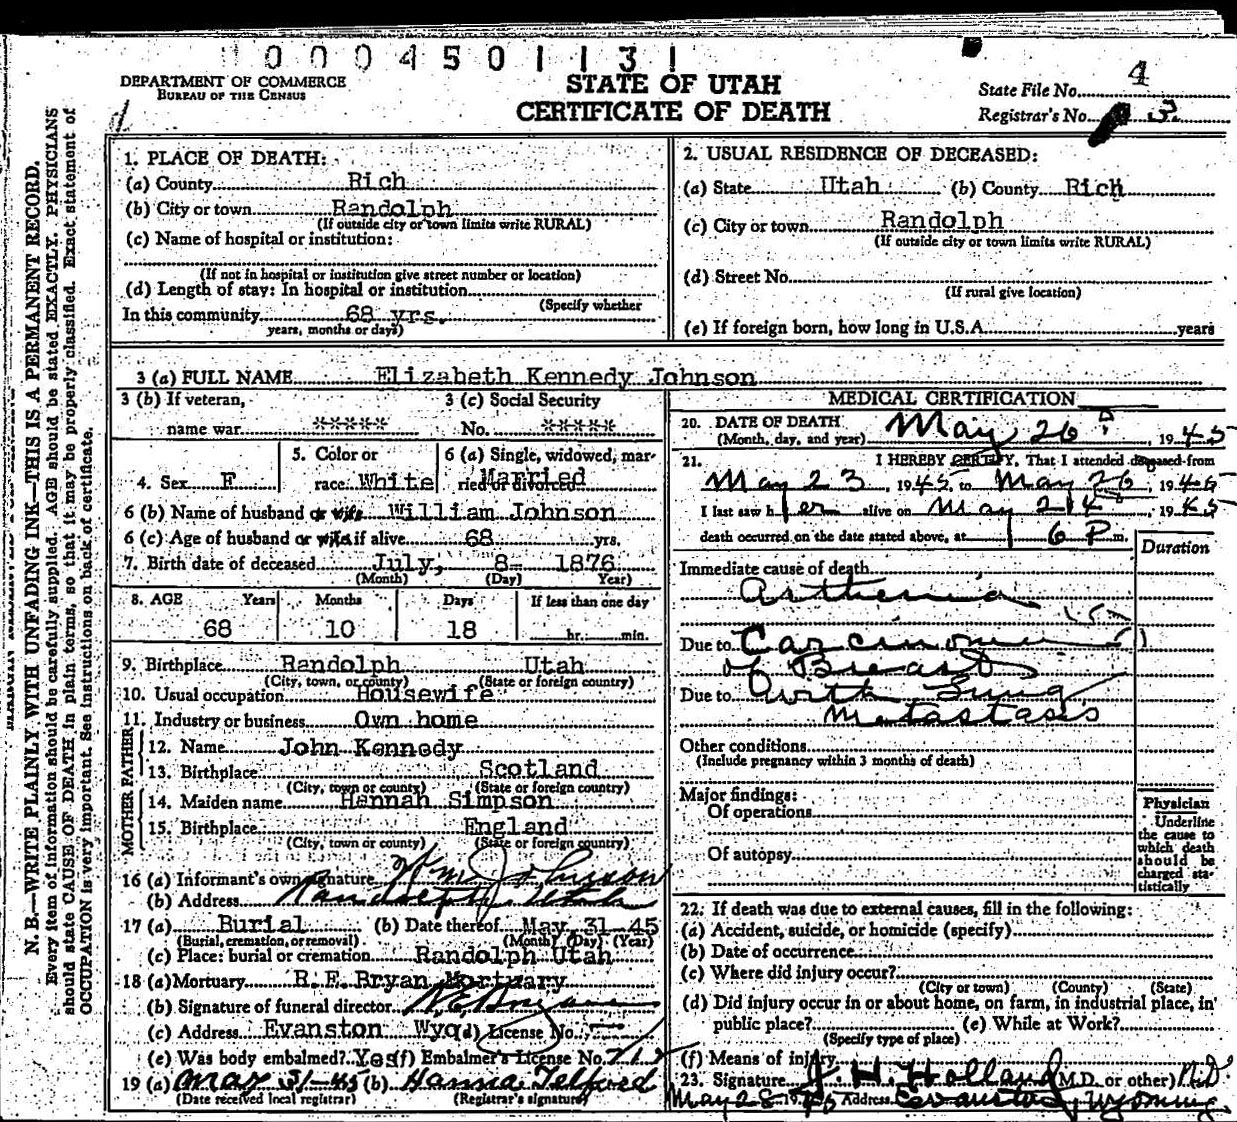 0 0 0 4 5 0 1 1 3 1
DEPARTMENT OF COMMERCE
BUREAU OF THE CENSUS
STATE OF UTAH
CERTIFICATE OF DEATH
State File No. 4
Registrar's No. 3
N. B.—WRITE PLAINLY WITH UNFADING INK—THIS IS A PERMANENT RECORD.
Every item of information should be carefully supplied. AGE should be stated EXACTLY. PHYSICIANS
should state CAUSE OF DEATH in plain terms, so that it may be properly classified. Exact statement of
OCCUPATION is very important. See instructions on back of certificate.
1. PLACE OF DEATH:
(a) County Rich
(b) City or town Randolph
(If outside city or town limits write RURAL)
(c) Name of hospital or institution:
(If not in hospital or institution give street number or location)
(d) Length of stay: In hospital or institution
(Specify whether
In this community 68 yrs.
years, months or days)
2. USUAL RESIDENCE OF DECEASED:
(a) State Utah (b) County Rich
(c) City or town Randolph
(If outside city or town limits write RURAL)
(d) Street No.
(If rural give location)
(e) If foreign born, how long in U.S.A. years
3 (a) FULL NAME Elizabeth Kennedy Johnson
3 (b) If veteran, 3 (c) Social Security
name war ***** No. *****
4. Sex F 5. Color or race White 6 (a) Single, widowed, married or divorced Married
6 (b) Name of husband or wife William Johnson
6 (c) Age of husband or wife if alive 68 yrs.
7. Birth date of deceased July, 8- 1876
(Month) (Day) Year)
8. AGE Years Months Days If less than one day
68 10 18 hr. min.
9. Birthplace Randolph Utah
(City, town, or county) (State or foreign country)
10. Usual occupation Housewife
11. Industry or business Own home
FATHER
12. Name John Kennedy
13. Birthplace Scotland
(City, town or county) (State or foreign country)
MOTHER
14. Maiden name Hannah Simpson
15. Birthplace England
(City, town or county) (State or foreign country)
16 (a) Informant's own signature Wm. Johnson
(b) Address Randolph, Utah
17 (a) Burial (b) Date thereof May. 31-45
(Burial, cremation, or removal) (Month) (Day) (Year)
(c) Place: burial or cremation Randolph Utah
18 (a) Mortuary R.E. Bryan Mortuary
(b) Signature of funeral director
(c) Address Evanston Wyo (d) License No.
(e) Was body embalmed? Yes (f) Embalmer's License No.
19 (a) May 31-45 (b) Hanna Telford
(Date received local registrar) (Registrar's signature)
MEDICAL CERTIFICATION
20. DATE OF DEATH
(Month, day, and year) May 26, 1945
21. I HEREBY CERTIFY, That I attended deceased from
May 23, 1945 to May 26, 1945
I last saw her alive on May 24, 1945
death occurred on the date stated above, at 6 P m.
Duration
Immediate cause of death
Asthenia
Due to Carcinoma
of Breast
Due to With Lung
Metastasis
Other conditions
(Include pregnancy within 3 months of death)
Major findings:
Of operations
Of autopsy
Physician
Underline
the cause to
which death
should be
charged sta-
tistically
22. If death was due to external causes, fill in the following:
(a) Accident, suicide, or homicide (specify)
(b) Date of occurrence
(c) Where did injury occur?
(City or town) (County) (State)
(d) Did injury occur in or about home, on farm, in industrial place, in
public place? (e) While at Work?
(Specify type of place)
(f) Means of injury
23. Signature J. H. Holland (M.D. or other) M.D.
May 28 1945 Address Evanston, Wyoming